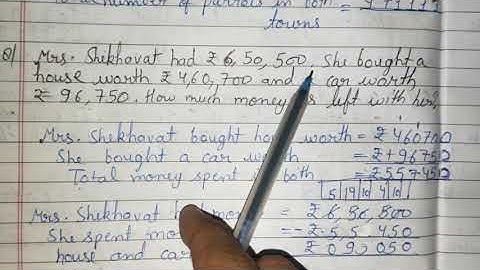 number of parrots in both
towns
Q) Mrs. Shekhavat had ₹ 6,50,500. She bought a
house worth ₹ 4,60,700 and a car worth
₹ 96,750. How much money is left with her?
Mrs. Shekhavat bought house worth = ₹ 460700
She bought a car worth = ₹ + 96750
Total money spent in both = ₹ 557450
5 19 10 4 10
Mrs. Shekhavat had = ₹ 6,50,500
She spent = - ₹ 5,5 ,450
house and car = ₹ 0 9 ,050